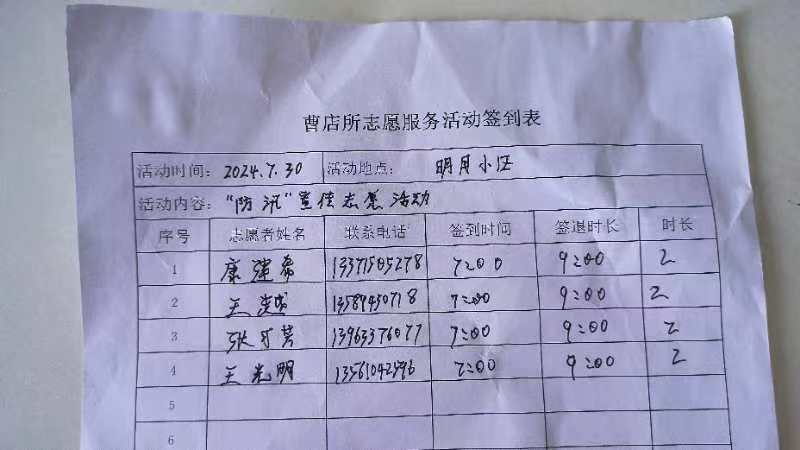 曹店所志愿服务活动签到表
活动时间: 2024.7.30 活动地点: 明月小区
活动内容: "防汛"宣传志愿活动
序号 志愿者姓名 联系电话 签到时间 签退时长 时长
1 康建希 13371505278 7:00 9:00 2
2 王 13589450718 7:00 9:00 2
3 张 13963376077 7:00 9:00 2
4 王光明 13561042596 7:00 9:00 2
5
6